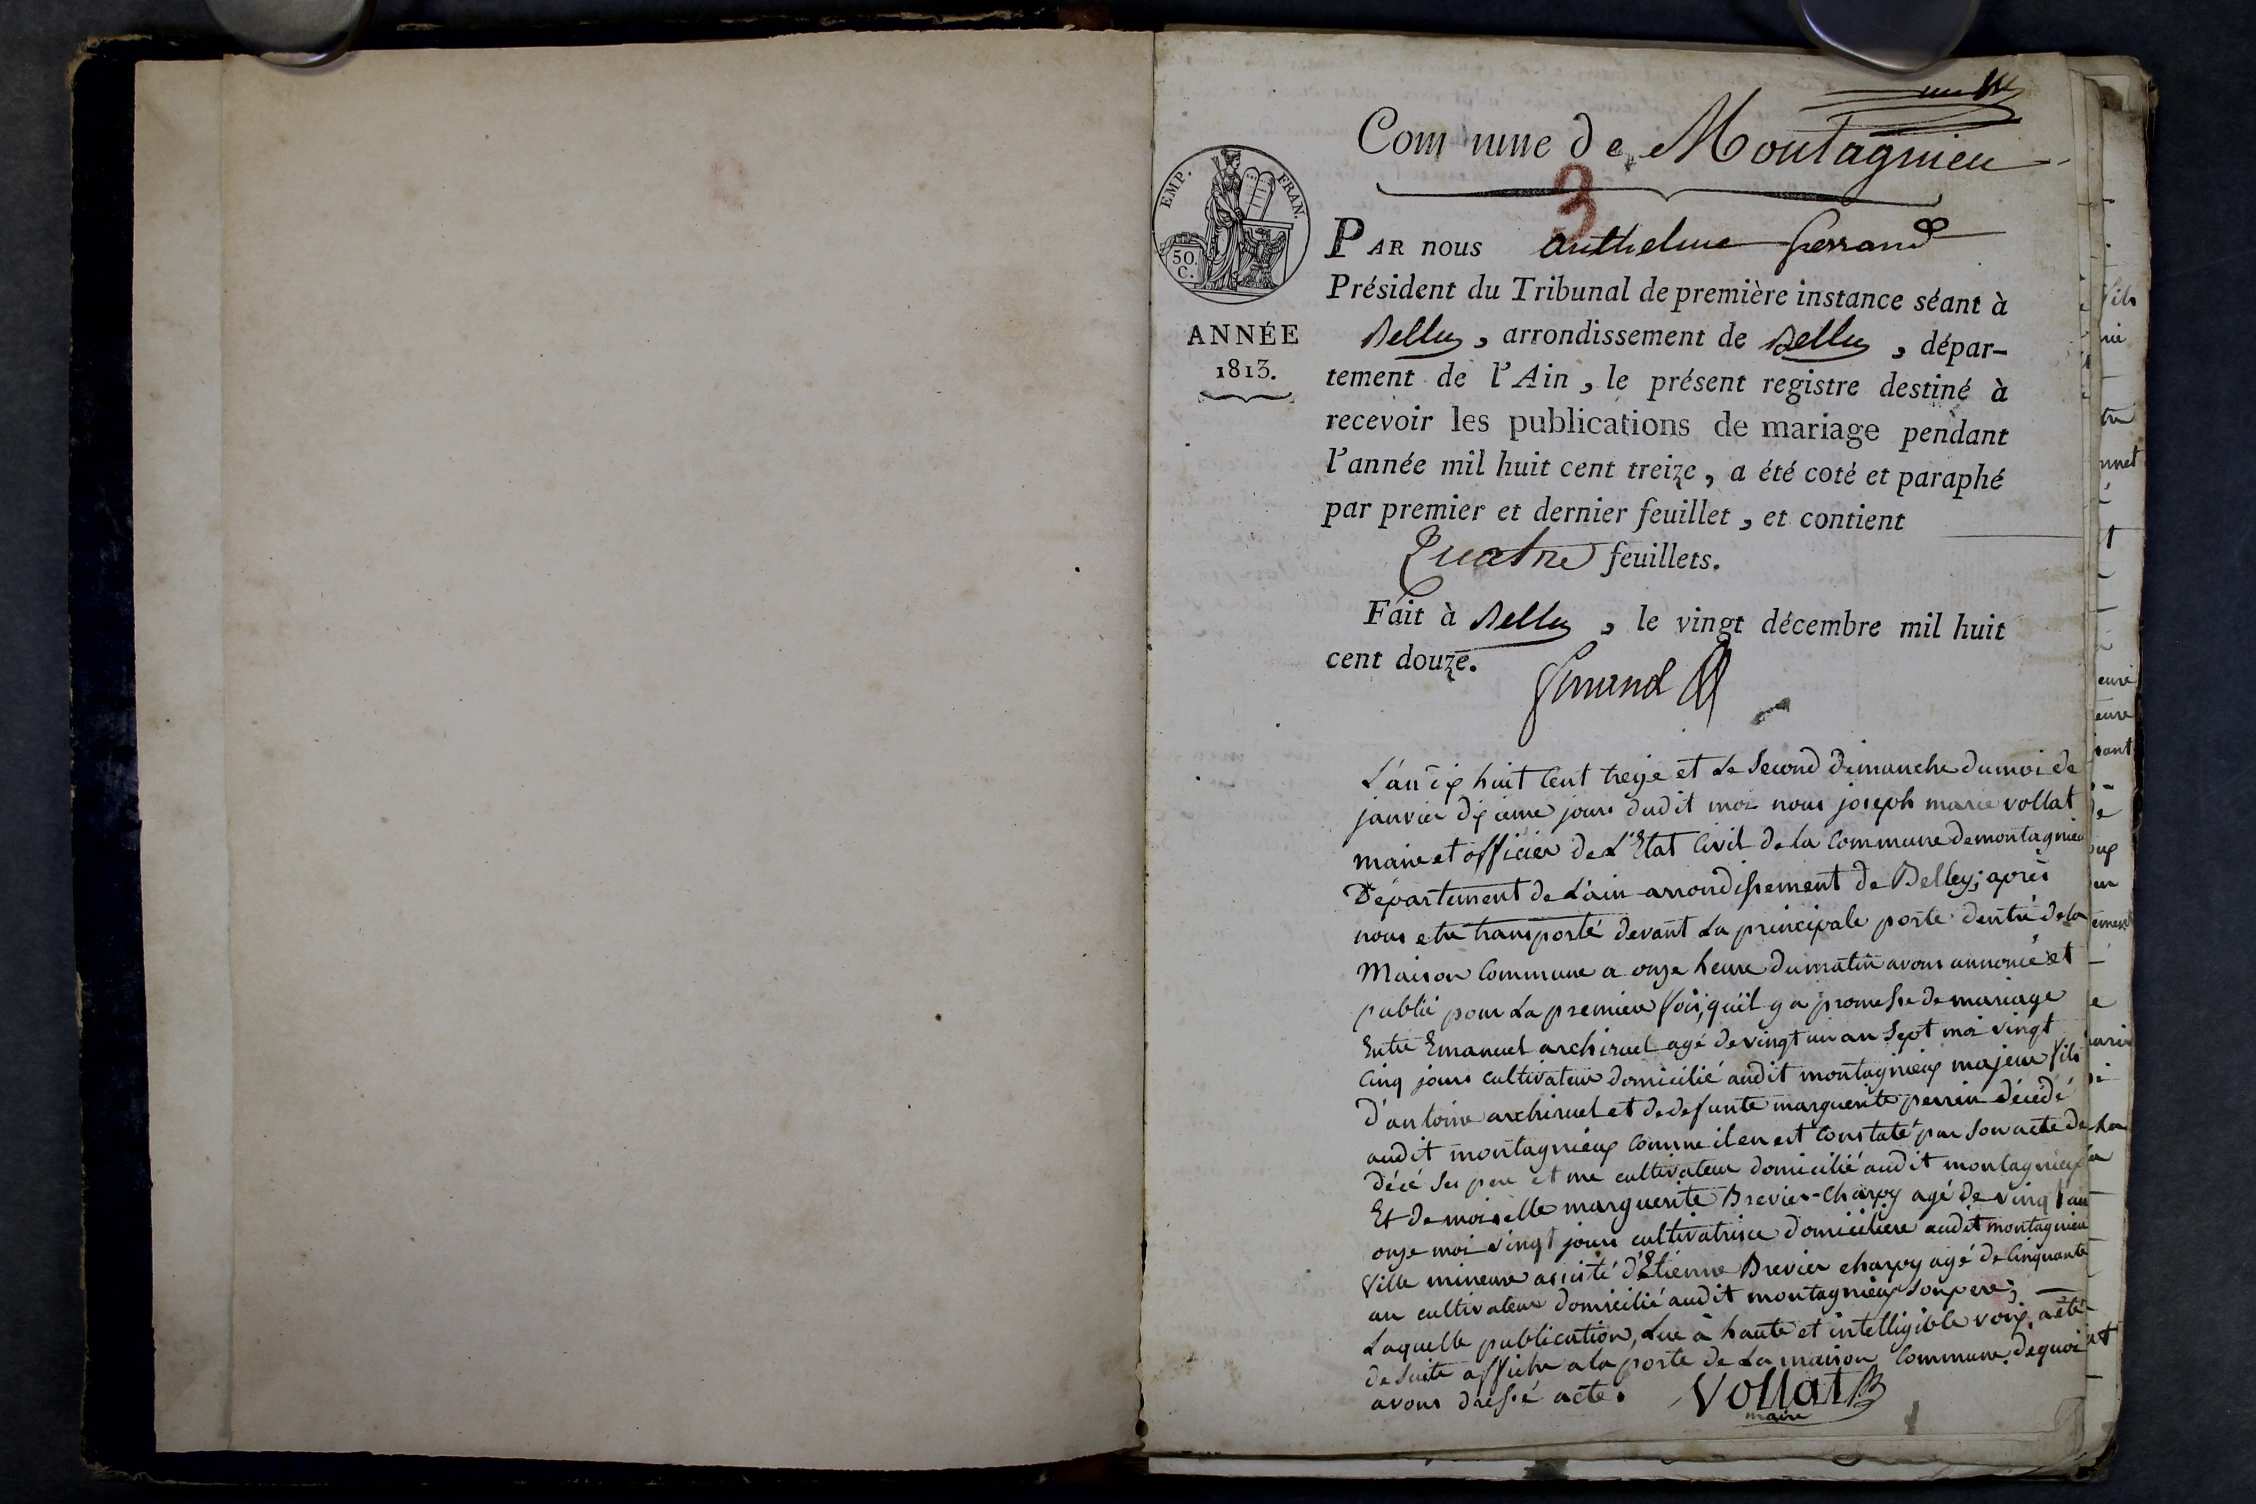 Commune de Montagnieu
3
EMP. FRAN.
50.
C.
ANNÉE
1813.
PAR nous anthelme ferrand
Président du Tribunal de première instance séant à
Belley, arrondissement de Belley, dépar-
tement de l'Ain, le présent registre destiné à
recevoir les publications de mariage pendant
l'année mil huit cent treize, a été coté et paraphé
par premier et dernier feuillet, et contient
Quatre feuillets.
Fait à Belley, le vingt décembre mil huit
cent douze.
ferrand
L'an dix huit Cent treize et Le Second Dimanche du moi de
janvier dixieme jours dudit moi nous joseph marie vollat
maire et officier de L'Etat Civil de la Commune de montagnieu
Département de L'ain arrondissement de Belley; après
nous etre transporté devant La principale porte dentré de la
Maison Commune a onze heure du matin avons annoncé et
publié pour La premiere fois, qu'il y a promesse de mariage
Entre Emanuel archiruel agé de vingt un an Sept moi vingt
Cinq jours cultivateur domicilié audit montagnieux majeur fils
d'antoine archiruel et de defunte marguerite perrin décédé
audit montagnieux Comme il en est Constaté par Son acte de
décé Ses pere et me cultivateur domicilié audit montagnieux
Et demoiselle marguerite Brevier-Charpy agé de vingt an
onze moi vingt jours cultivatrice domiciliere audit montagnieu
fille mineure assisté d'Etienne Brevier charpy agé de Cinquante
an cultivateur domicilié audit montagnieux Son pere;
Laquelle publication, Lue à haute et intelligible voix, a été
de Suite affiche a la porte de La maison Commune, dequoi
avons dressé acte. Vollat
maire